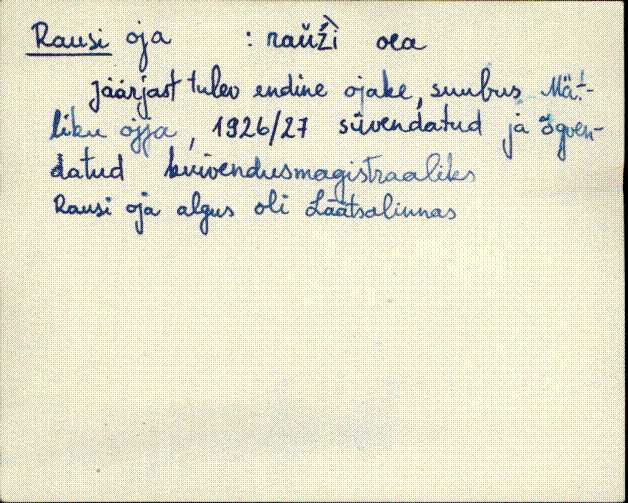 Rausi oja : rauži oea
Jäärjast tulev endine ojake, suubus Mät-
liku ojja, 1926/27 süvendatud ja õgven-
datud kuivendusmagistraaliks
Rausi oja algus oli Läätsalinnas